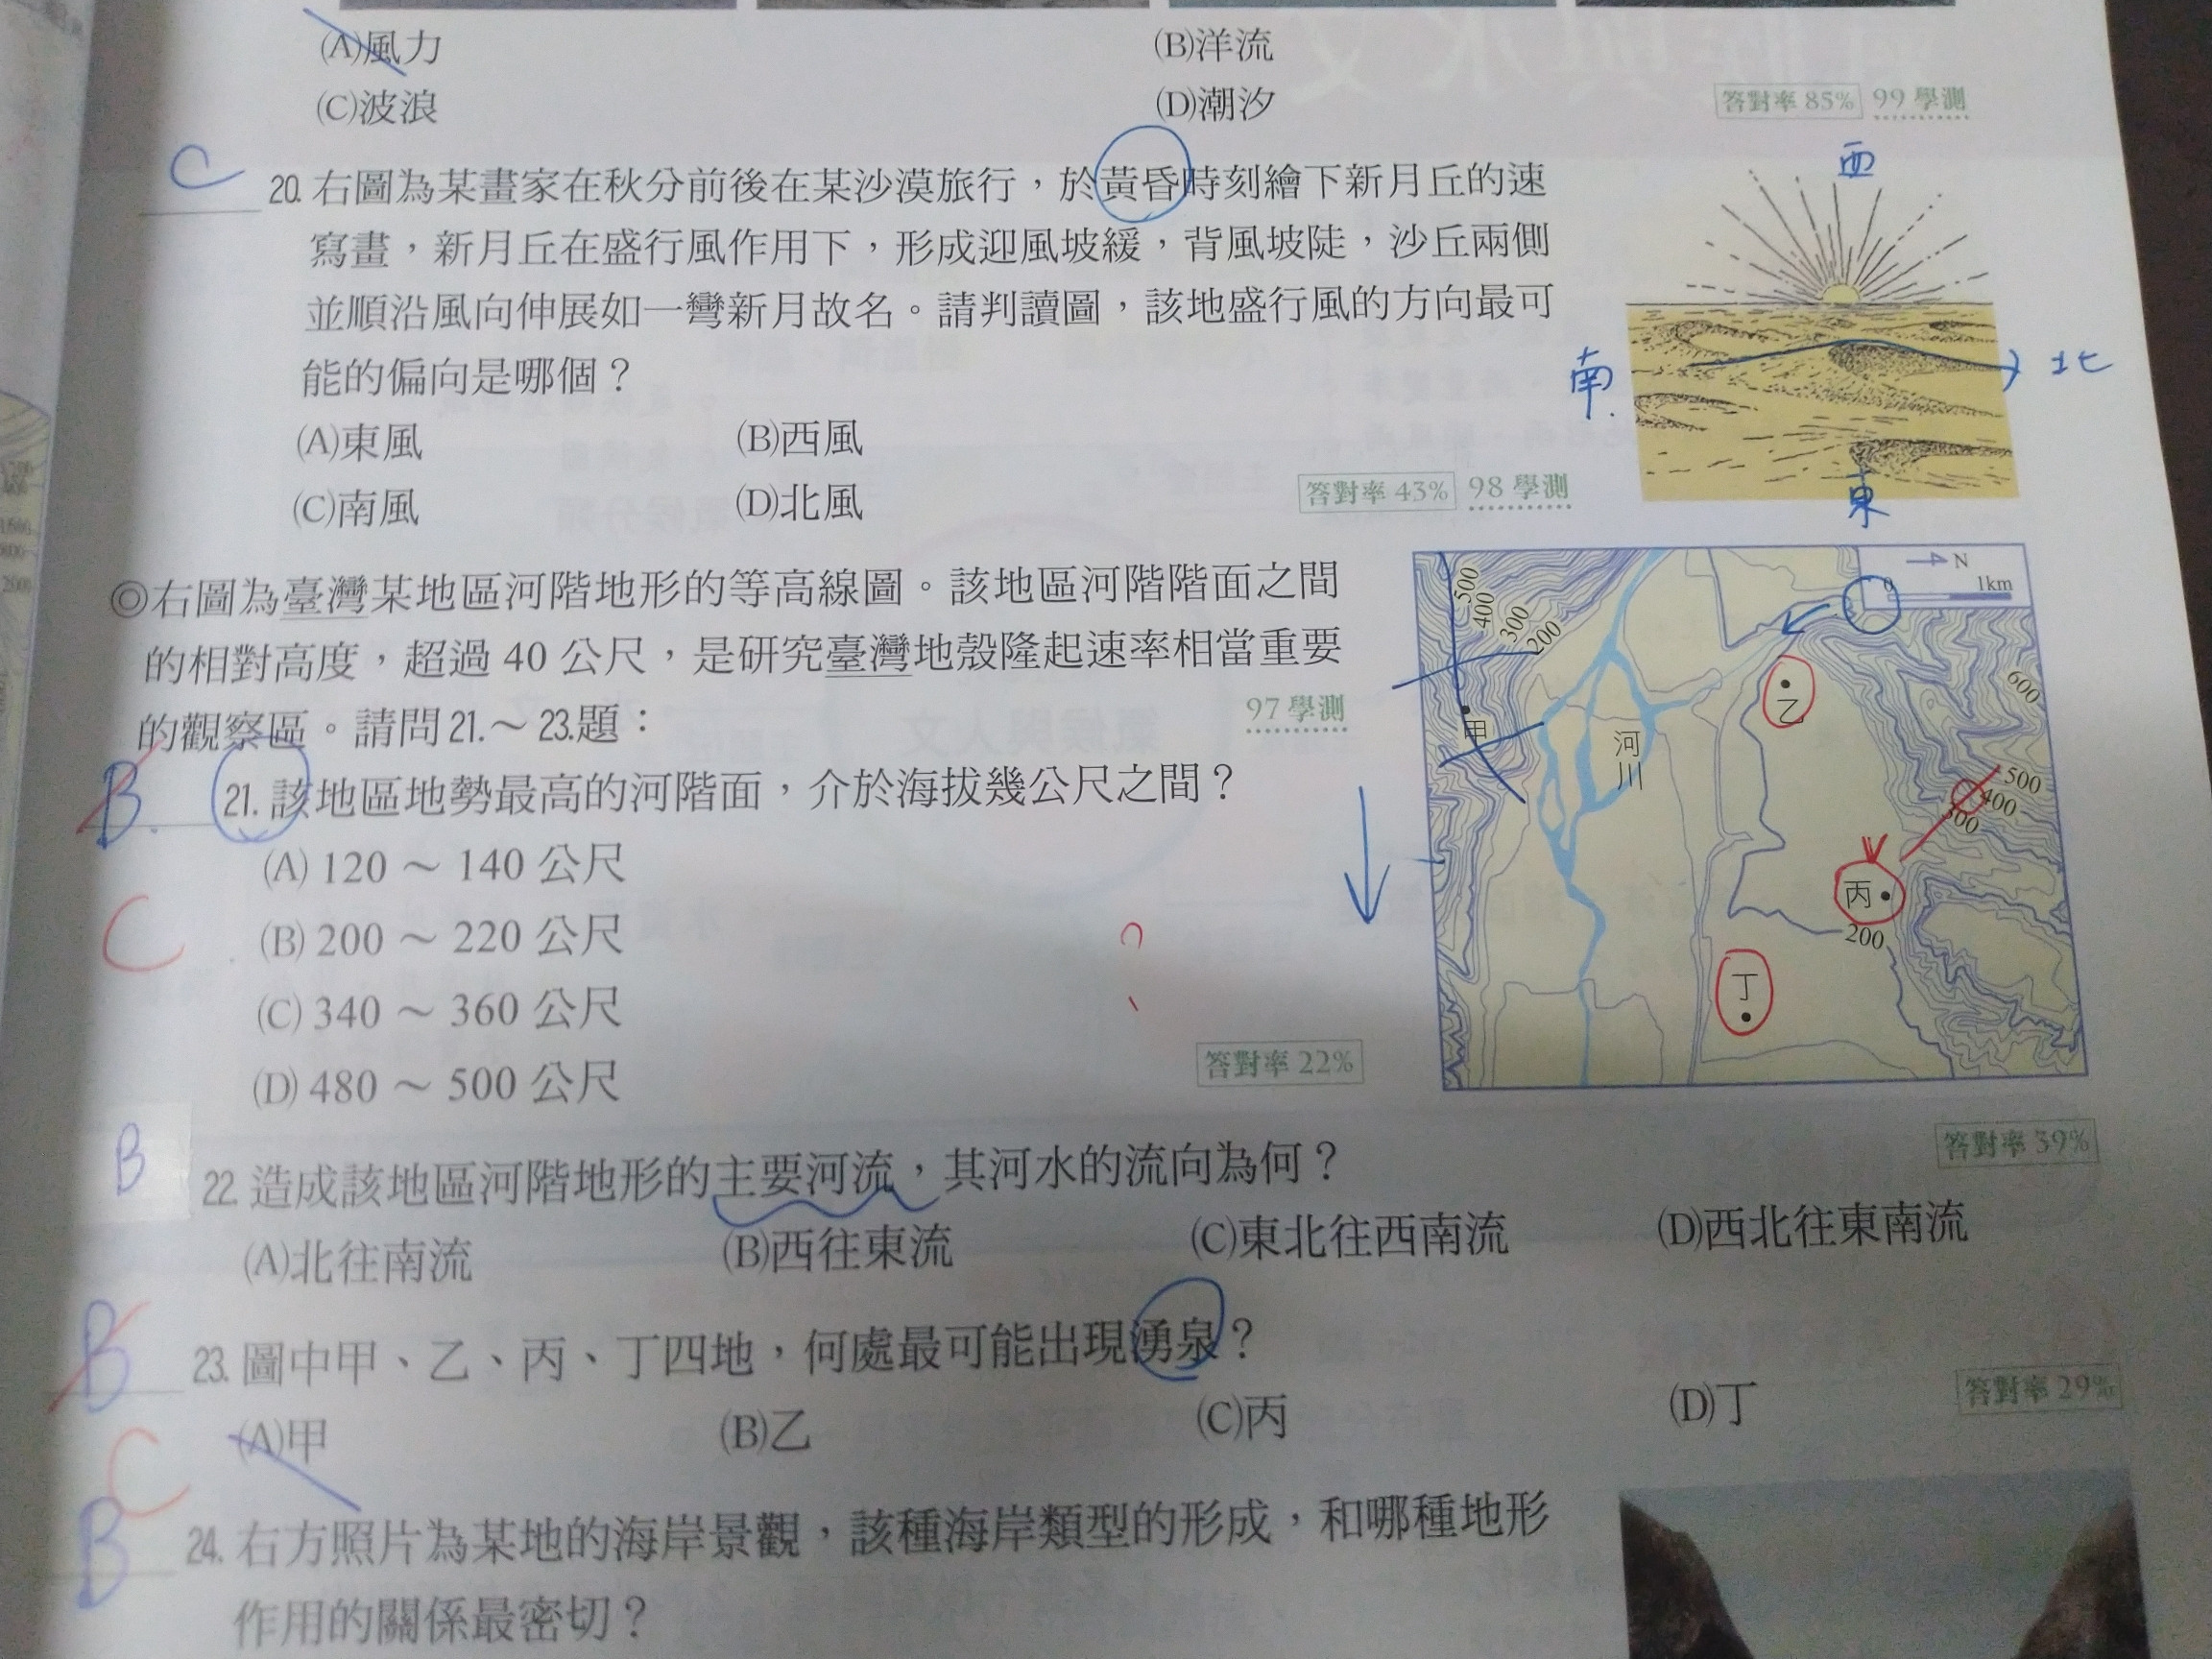 (A)風力
(B)洋流
(C)波浪
(D)潮汐
答對率 85% 99 學測
C
20. 右圖為某畫家在秋分前後在某沙漠旅行，於黃昏時刻繪下新月丘的速
寫畫，新月丘在盛行風作用下，形成迎風坡緩，背風坡陡，沙丘兩側
並順沿風向伸展如一彎新月故名。請判讀圖，該地盛行風的方向最可
能的偏向是哪個？
(A)東風
(B)西風
(C)南風
(D)北風
答對率 43% 98 學測
西
南
北
東
◎右圖為臺灣某地區河階地形的等高線圖。該地區河階階面之間
的相對高度，超過 40 公尺，是研究臺灣地殼隆起速率相當重要
的觀察區。請問 21.～ 23.題：
97 學測
N
0
1km
500
400
300
200
甲
河川
乙
600
500
400
300
丙
200
丁
B.
21. 該地區地勢最高的河階面，介於海拔幾公尺之間？
(A) 120 ～ 140 公尺
C
(B) 200 ～ 220 公尺
(C) 340 ～ 360 公尺
(D) 480 ～ 500 公尺
答對率 22%
B
22. 造成該地區河階地形的主要河流，其河水的流向為何？
答對率 39%
(A)北往南流
(B)西往東流
(C)東北往西南流
(D)西北往東南流
B
23. 圖中甲、乙、丙、丁四地，何處最可能出現湧泉？
答對率 29%
(A)甲
(B)乙
(C)丙
(D)丁
C
B
24. 右方照片為某地的海岸景觀，該種海岸類型的形成，和哪種地形
作用的關係最密切？